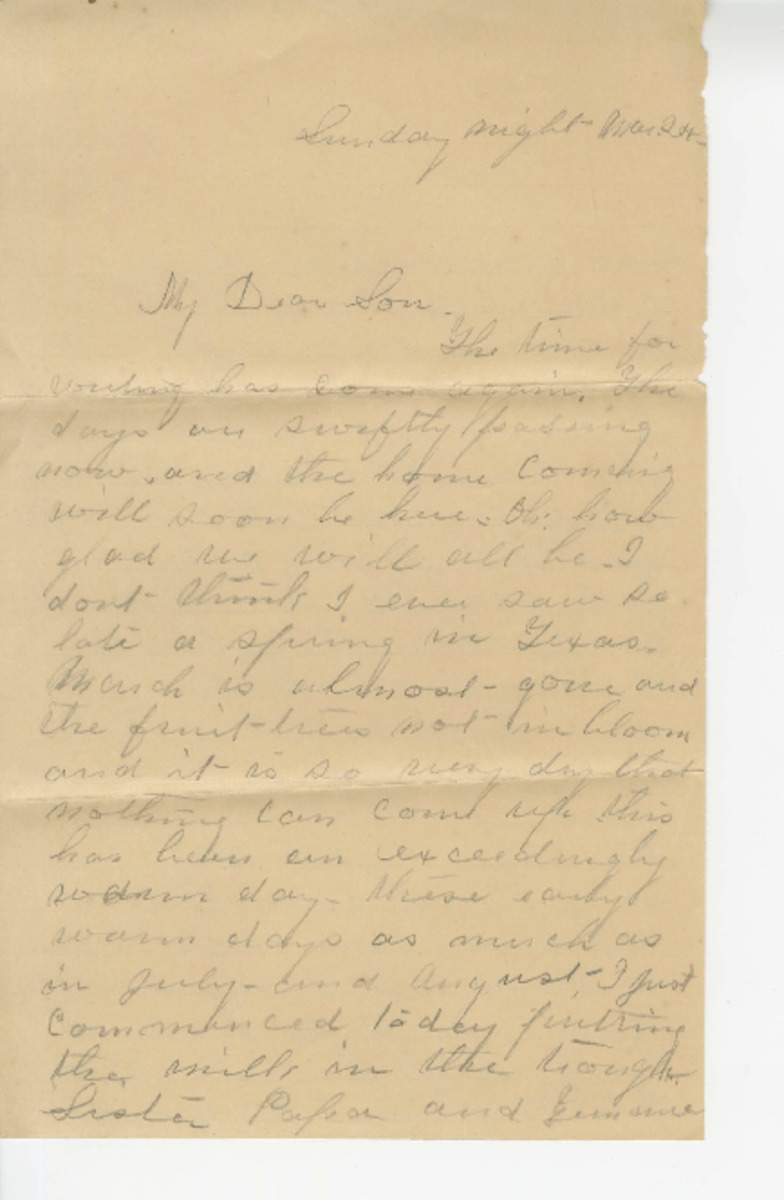 Sunday night Mar 24
My Dear Son.
The time for
writing has come again. The
days are swiftly passing
now, and the home comming
will soon be here. Oh! how
glad we will all be. I
dont think I ever saw so
late a spring in Texas.
March is almost gone and
the fruit trees not in bloom
and it is so very dry that
nothing can come up this
has been an exceedingly
warm day - these early
warm days as much as
in July and August I just
commenced today putting
the milk in the trough.
Sister Papa and